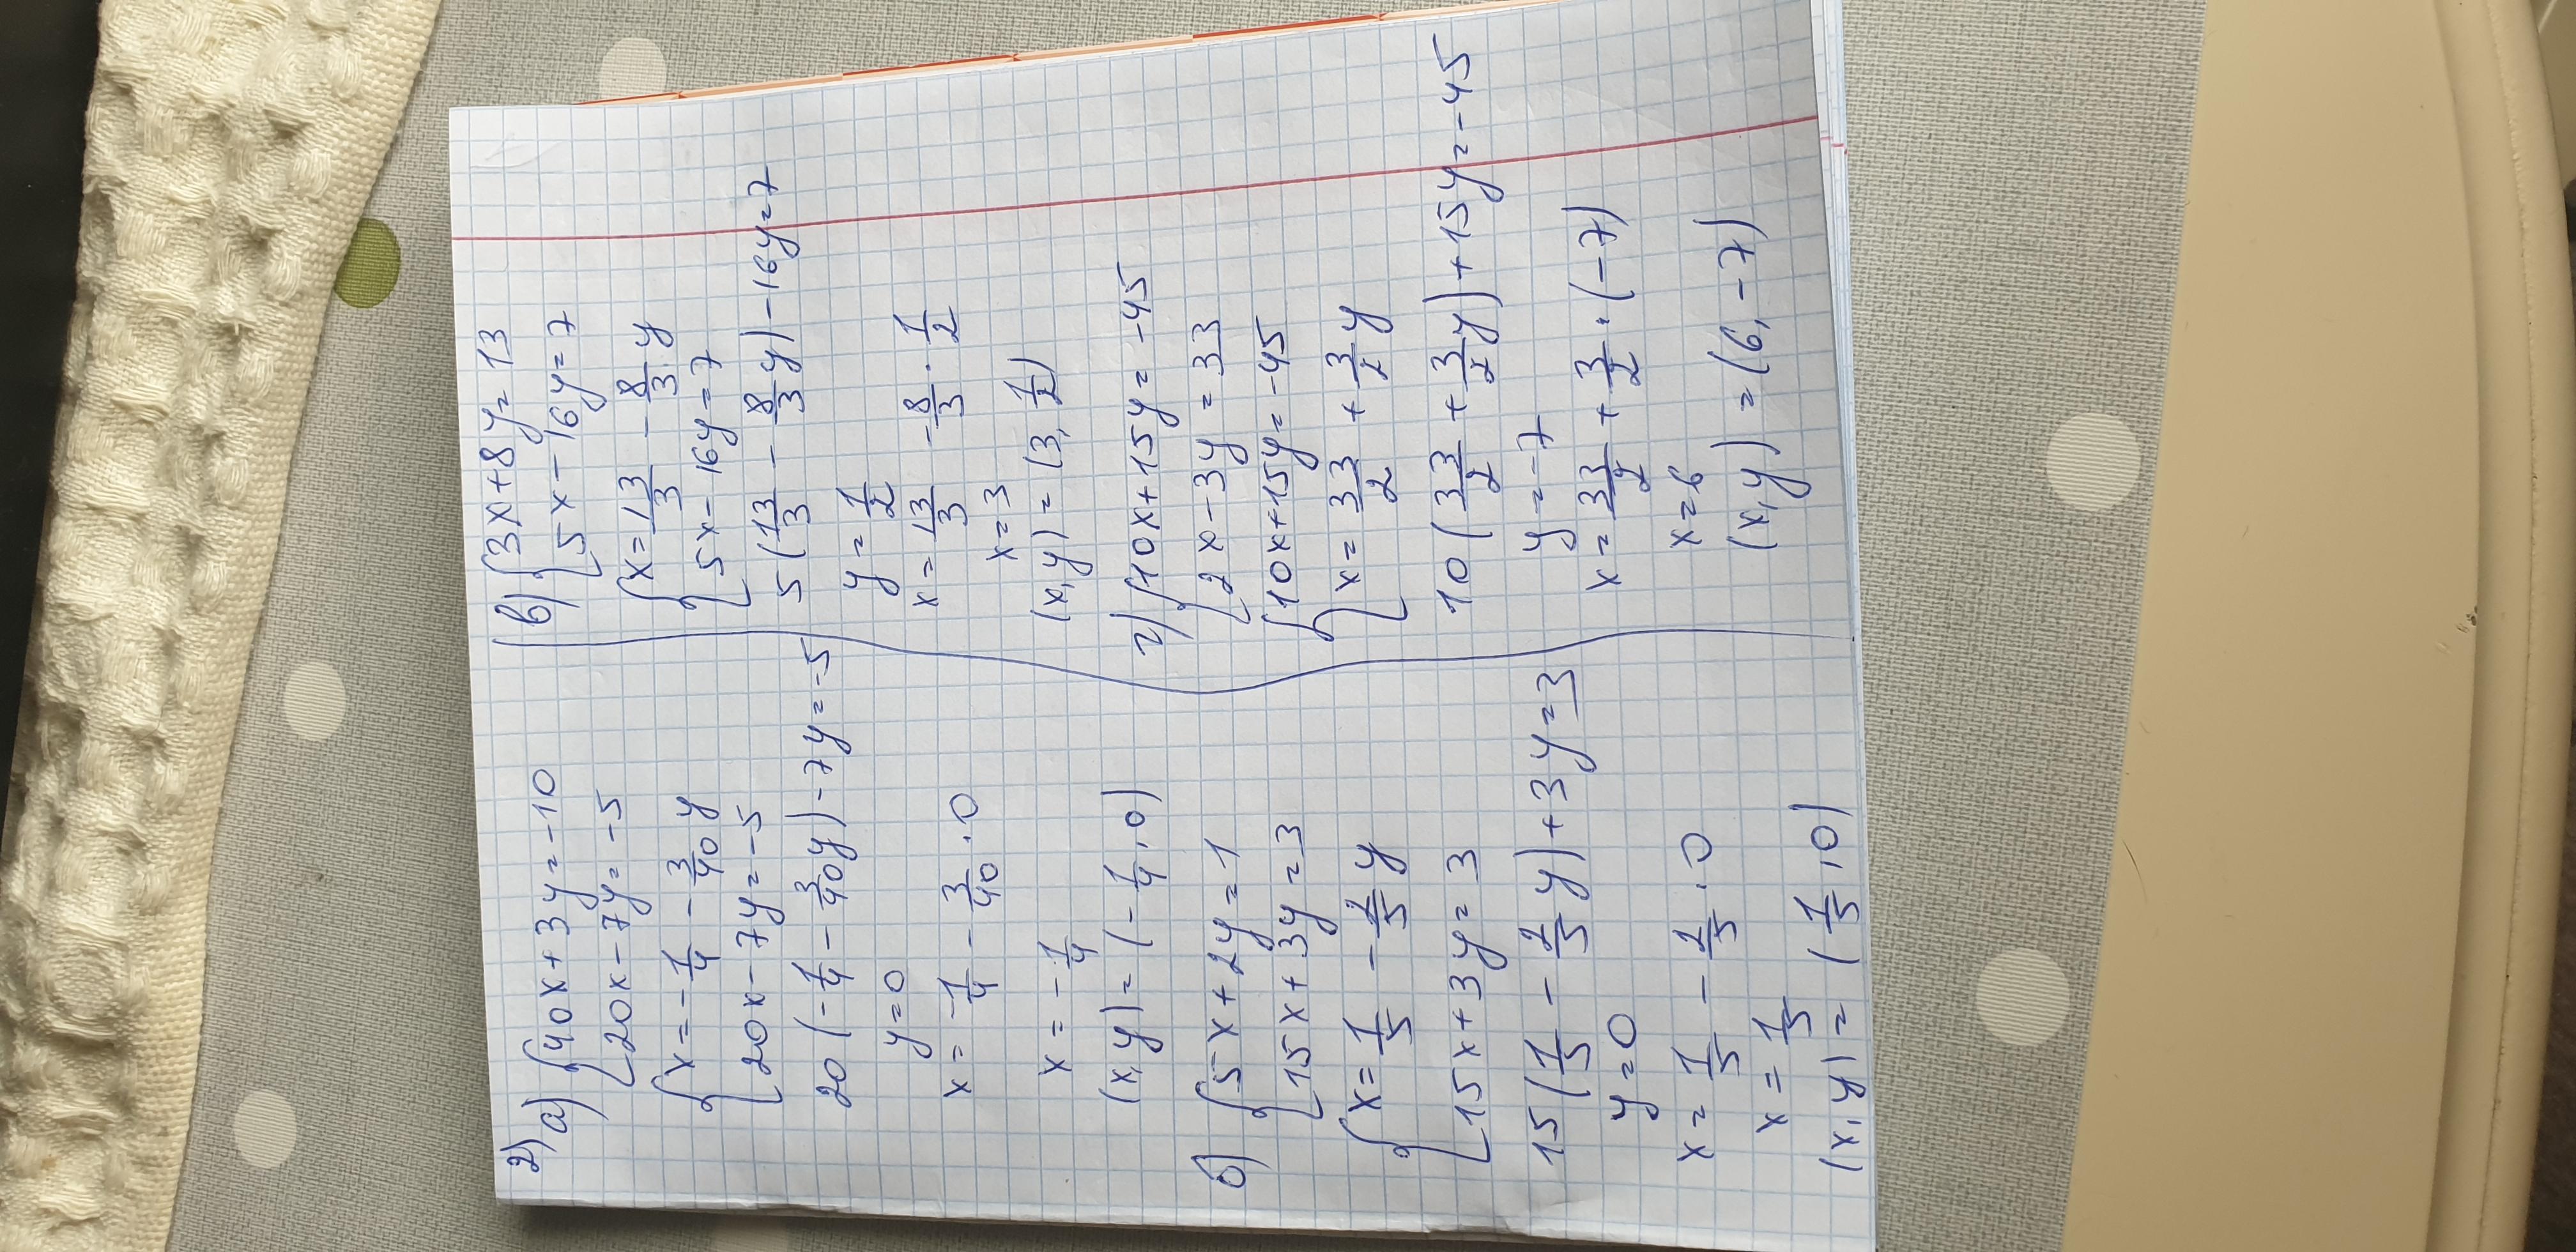 2)
а) {40x+3y=-10
{20x-7y=-5
{x=-1/4-3/40y
{20x-7y=-5
20(-1/4-3/40y)-7y=-5
y=0
x=-1/4-3/40·0
x=-1/4
(x,y)=(-1/4,0)
б) {5x+2y=1
{15x+3y=3
{x=1/5-2/5y
{15x+3y=3
15(1/5-2/5y)+3y=3
y=0
x=1/5-2/5·0
x=1/5
(x,y)=(1/5,0)
в) {3x+8y=13
{5x-16y=7
{x=13/3-8/3y
{5x-16y=7
5(13/3-8/3y)-16y=7
y=1/2
x=13/3-8/3·1/2
x=3
(x,y)=(3,1/2)
г) {10x+15y=-45
{2x-3y=33
{10x+15y=-45
{x=33/2+3/2y
10(33/2+3/2y)+15y=-45
y=-7
x=33/2+3/2·(-7)
x=6
(x,y)=(6,-7)